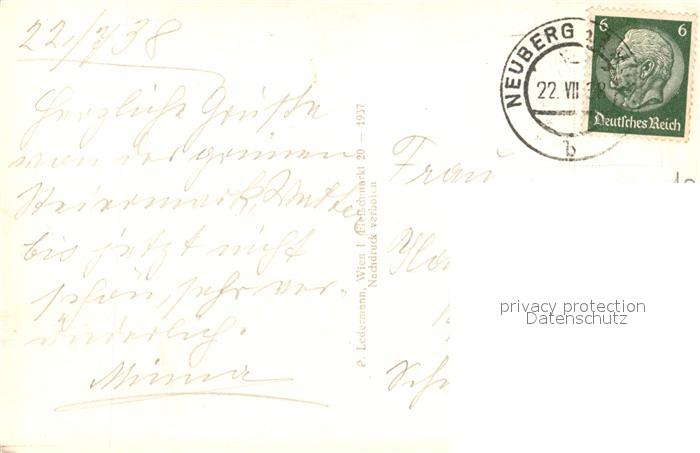 22./7 38
Herzliche Grüße
von der grünen
Steiermark, Wetter
bis jetzt nicht
schön, sehr ver-
änderlich.
Minna
P. Ledermann, Wien I Fleischmarkt 20 – 1937
Nachdruck verboten
NEUBERG
22. VII 38
b
6 6
Deutsches Reich
Frau
privacy protection
Datenschutz